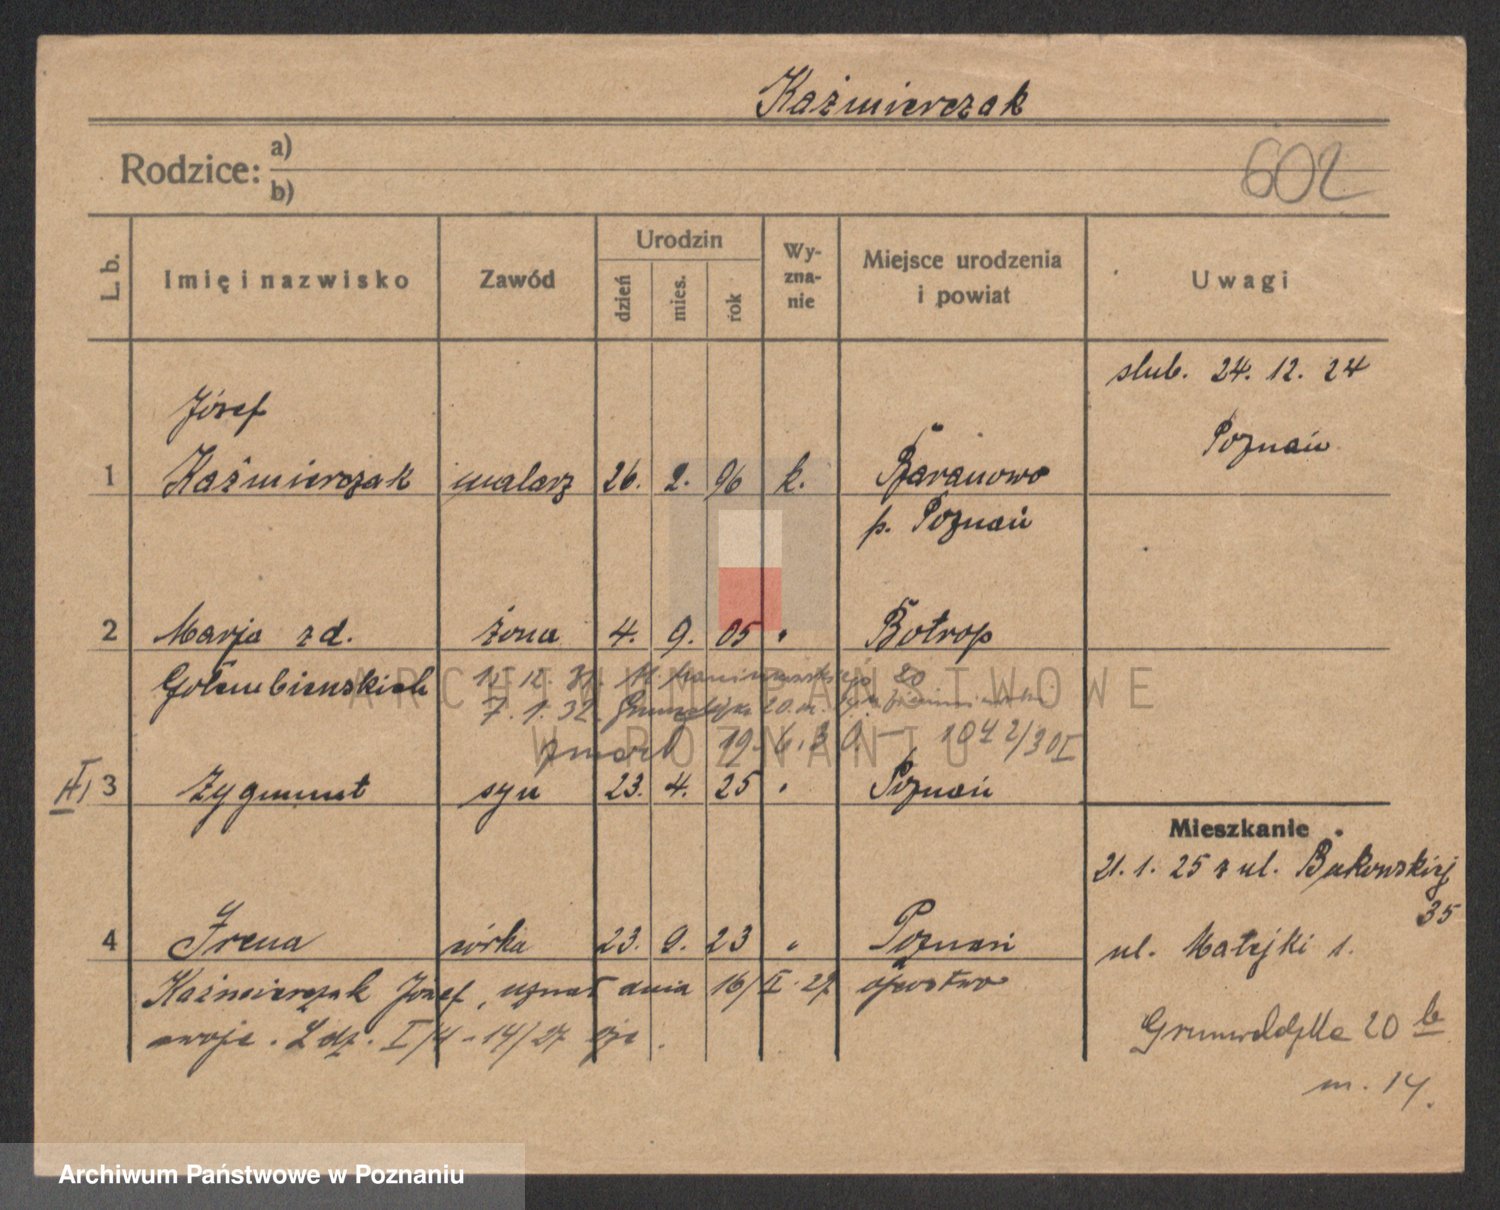 Kaźmierczak
Rodzice: a)
b)
602
L. b.
Imię i nazwisko
Zawód
Urodzin
dzień
mies.
rok
Wy-
zna-
nie
Miejsce urodzenia
i powiat
Uwagi
slub. 24. 12. 24
Poznań
Józef
1 Kaźmierczak malarz 26. 2. 96 k. Baranowo
p. Poznań
2 Marja zd. żona 4. 9. 05 " Botrop
Gołembienskich
7. 1. 32.
zmarł 19. 6. 30 –
3 Zygmunt syn 23. 4. 25 " Poznań
Mieszkanie
21. 1. 25 z ul. Bukowskiej
35
4 Irena córka 23. 9. 23 " Poznań
ul. Matejki 1.
Kaźmierczak Józef, uznał dnia 16/II. 27 ojcostwo
swoje. L dz. I/4 - 14/27
Grunwaldzka 20 b
m. 14.
ARCHIWUM PAŃSTWOWE
W POZNANIU
Archiwum Państwowe w Poznaniu